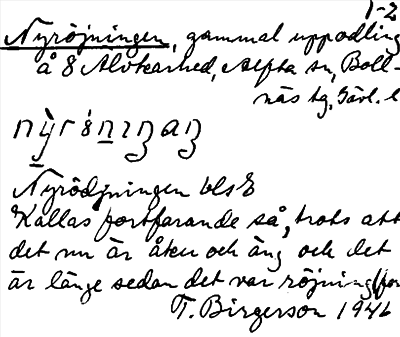 1-2
Nyröjningen, gammal uppodling
å 8 Alvkarhed, Alfta sn, Boll-
näs tg, Gävl. l
Nyrödjningen bls 8
Kallas fortfarande så, trots att
det nu är åker och äng och det
är länge sedan det var röjning
T. Birgerson 1946